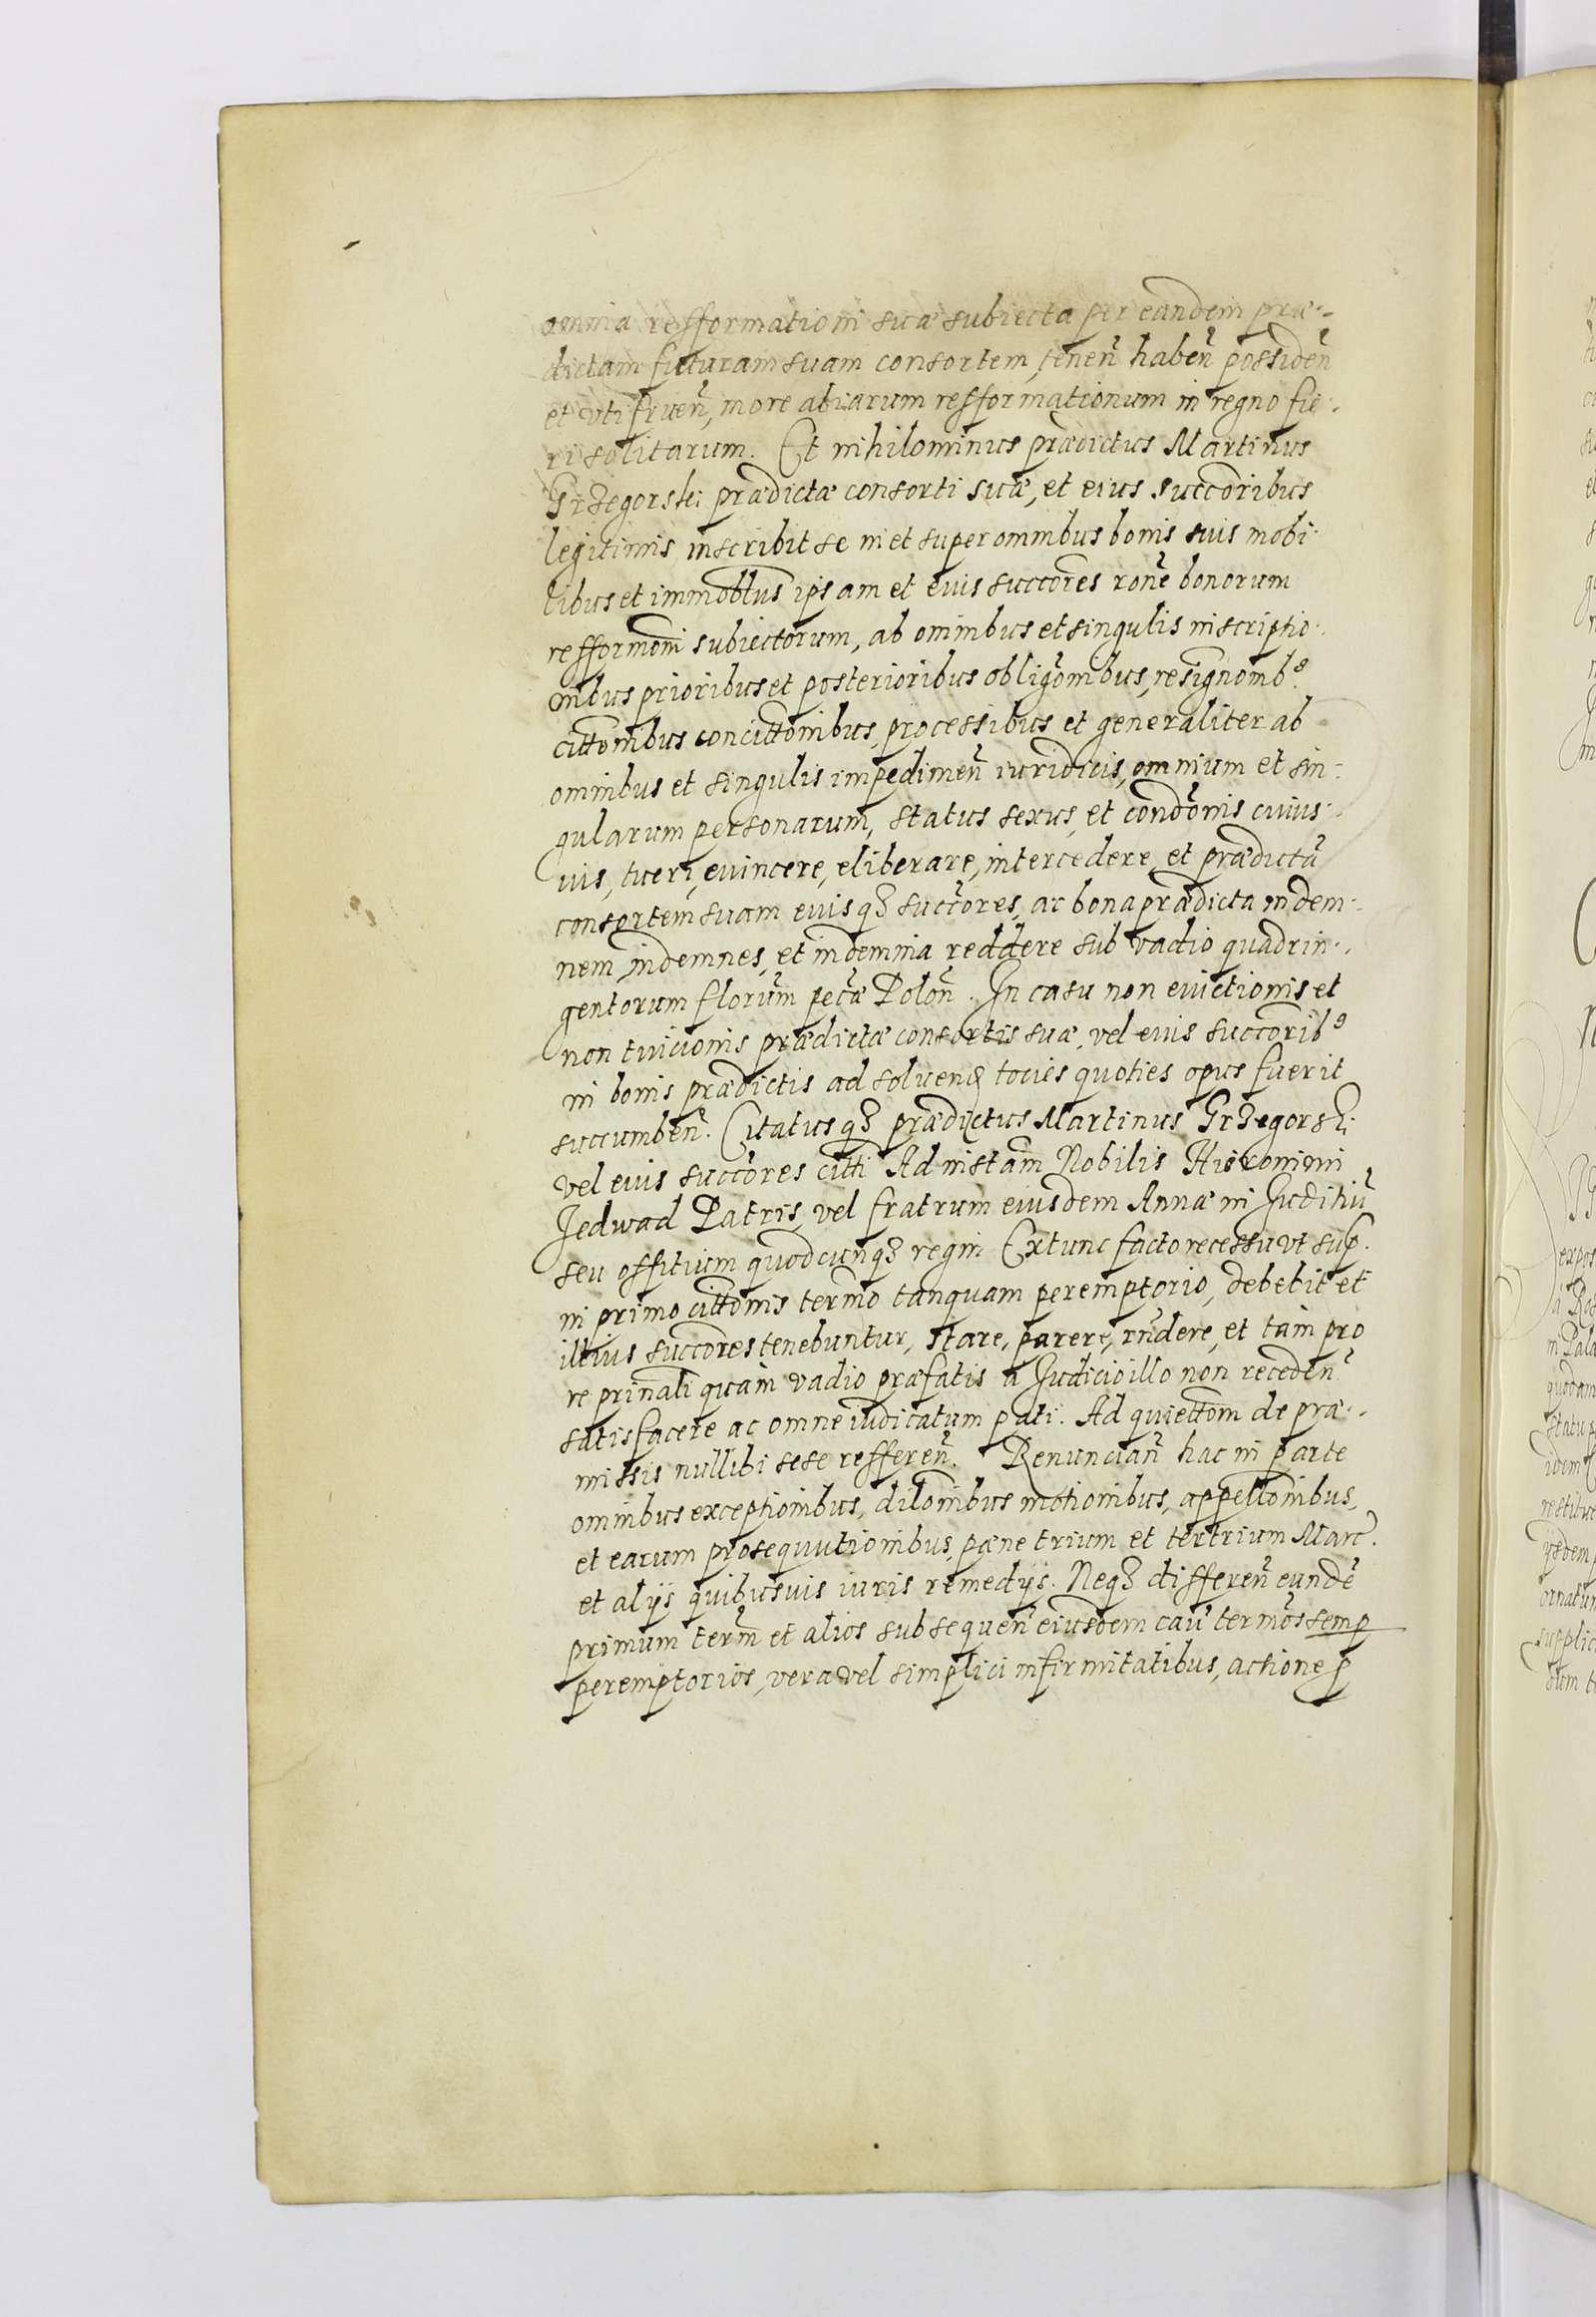 omnia refformationi suæ subiecta per eandem præ-
dictam futuram suam consortem, tenen̄ haben̄ possiden̄
et vti fruen̄, more aliarum refformationum in regno fie-
ri solitarum. Et nihilominus prædictus Martinus
Grzegorski prædictæ consorti suæ, et eius succoribus
legitimis inscribit se in et super omnibus bonis suis mobi-
libus et immobbus ipsam et eius succores rone bonorum
refformoni subiectorum, ab omnibus et singulis inscriptio-
nibus prioribus et posterioribus obligonibus, resignonibꝰ
cittonibus concittonibus, processibus et generaliter ab
omnibus et singulis impedimen̄ iuridicis, omnium et sin-
gularum personarum, status sexus, et condonis cuius-
uis, tueri, euincere, eliberare, intercedere, et prædictā
consortem suam eiusqꝫ succores, ac bona prædicta indem-
nem indemnes, et indemnia reddere sub vadio quadrin-
gentorum florum pecæ Polon̄. In casu non euictionis et
non tuicionis prædictæ consortis suæ, vel eius succoribꝰ
in bonis prædictis ad soluend tocies quoties opus fuerit
succumben̄. Citatusqꝫ prædictus Martinus Grzegorski
vel eius succores citti Ad instam Nobilis Hieronimi
Jedwad Patris, vel fratrum eiusdem Annæ in Juditiū
seu offitium quodcunqꝫ regni Extunc facto recessu vt sup.
in primo cittonis termo tanquam peremptorio, debebit et
illius succores tenebuntur, stare, parere, rndere, et tam pro
re prinali quam vadio præfatis a Judicio illo non receden̄
satisfacere ac omne iudicatum pati. Ad quiettom de præ-
missis nullibi sese refferen̄. Renuncian̄ hac in parte
omnibus exceptionibus, dilonibus motionibus, appellonibus,
et earum prosequutionibus, pæne trium et tertrium Marc.
et alijs quibusuis iuris remedijs. Neqꝫ differen̄ eundē
primum term et alios subsequen̄ eiusdem cau termos semp
peremptorios, vera vel simplici infirmitatibus, actione p